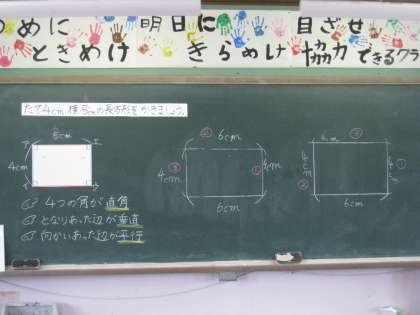 つめに 明日に 目ざせ
ときめけ きらめけ 協力できるクラ
たて4cm、横5cmの長方形をかきましょう。
5cm
ア エ
4cm
イ ウ
4つの角が直角
となりあった辺が垂直
向かいあった辺が平行
② 6cm
③ 4cm ① 4cm
6cm
6cm ③
4cm 4cm ①
②
6cm